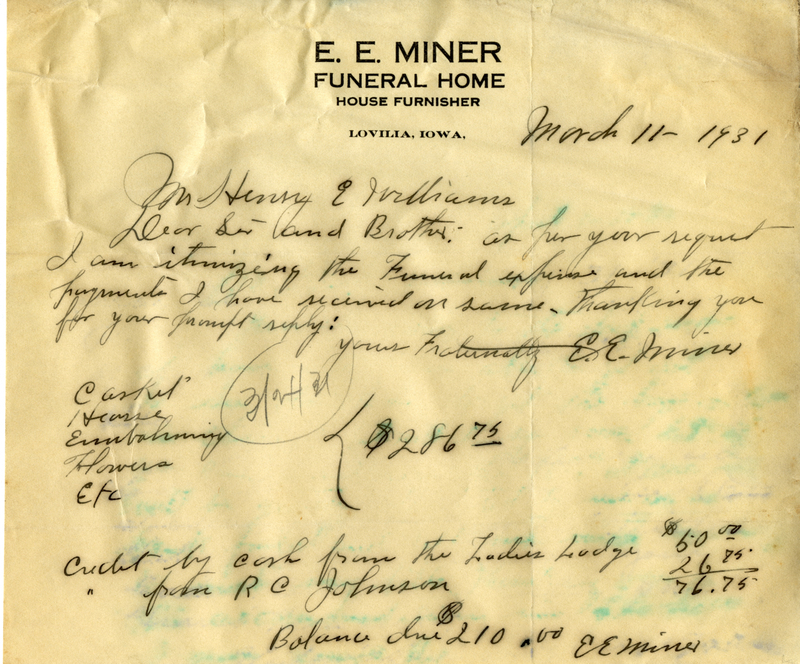 E. E. MINER
FUNERAL HOME
HOUSE FURNISHER
LOVILIA, IOWA.
March 11- 1931
Mr Henry E Williams
Dear Sir and Brother: as per your request
I am itimizing the Funeral expense and the
payments I have received on same. Thanking you
for your prompt reply:
yours Fraternally E.E. Miner
Casket
Hearse
Embalming
Flowers
Etc
$286 75
Credit by cash from the Ladies Lodge $50 00
" from R C Johnson 26 75
76.75
Balance due $210.00 E E Miner